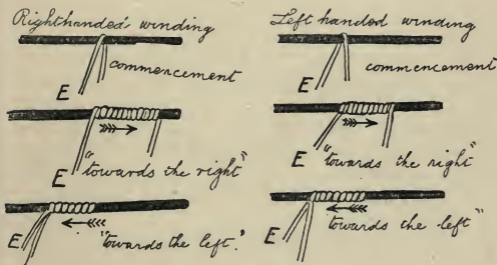 Righthanded's winding
commencement
E
E
"towards the right"
E
"towards the left."
Left handed winding
commencement
E
E
"towards the right"
E
"towards the left"